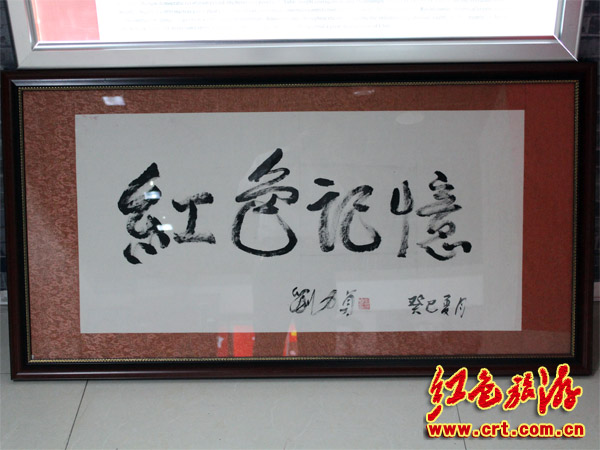 紅色记憶
劉力貞 癸巳夏月
红色旅游
www.crt.com.cn